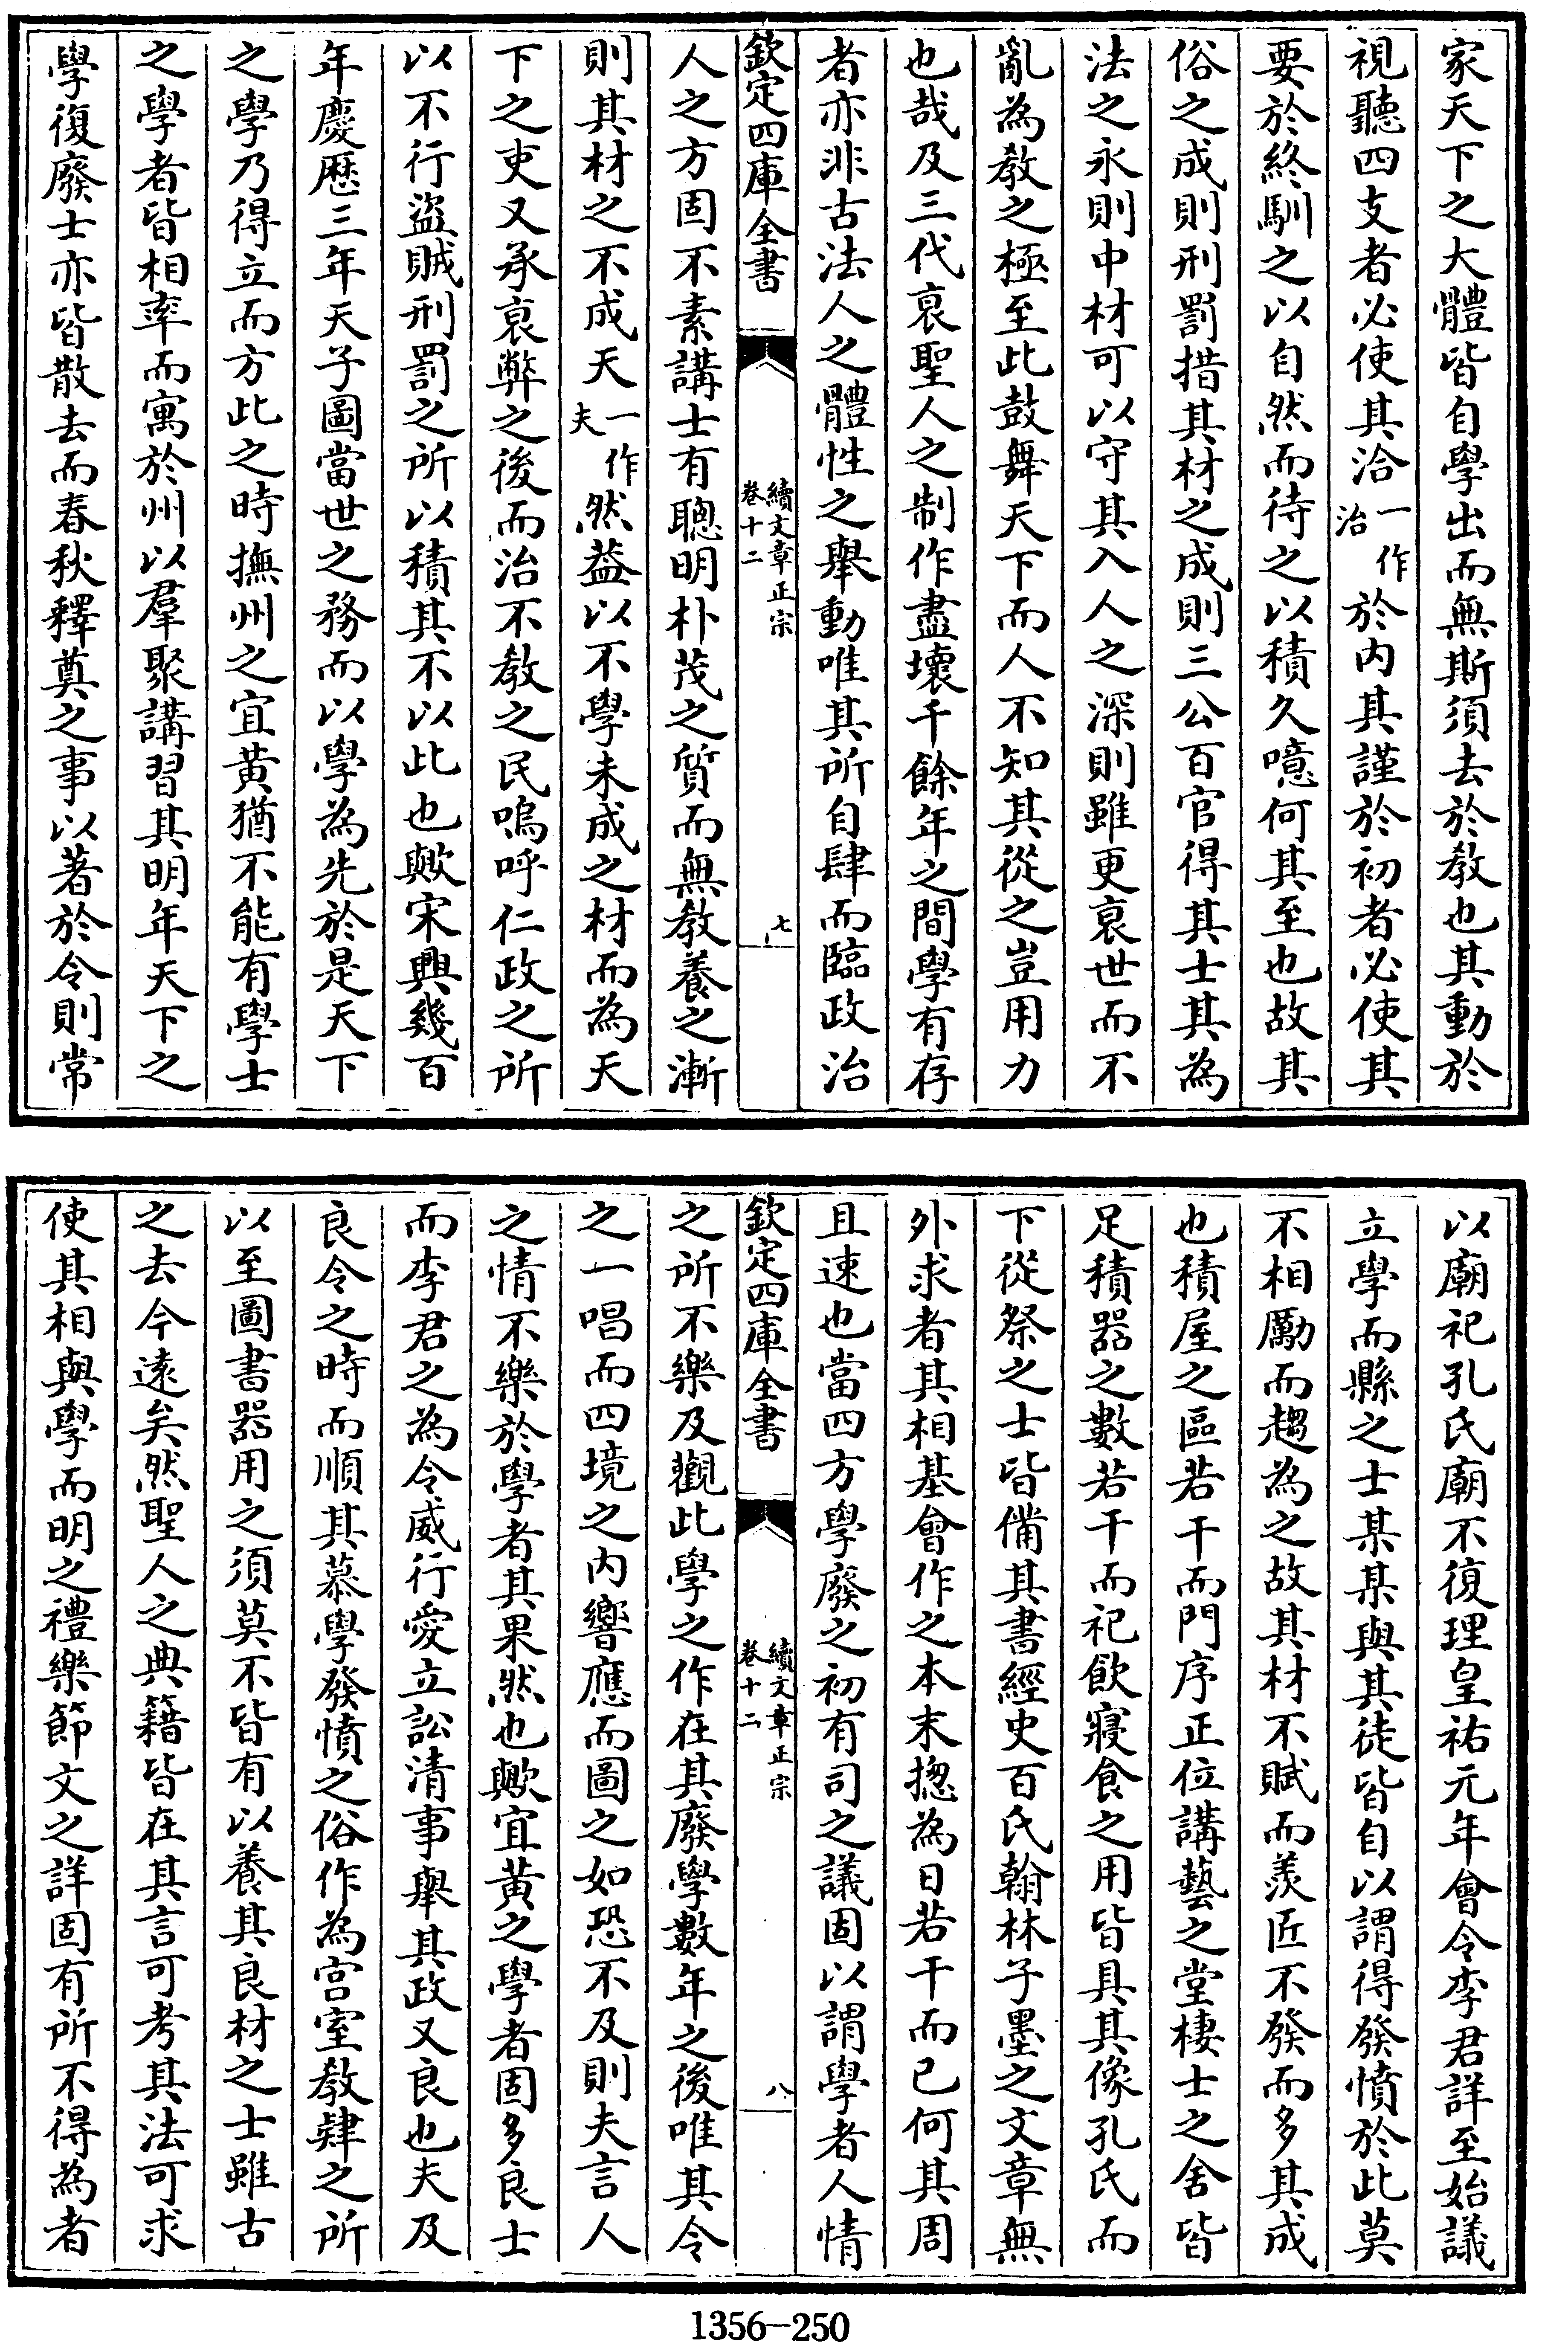 家天下之大體皆自學出而無斯須去於教也其動於
視聽四支者必使其洽一作治於内其謹於初者必使其
要於終馴之以自然而待之以積久噫何其至也故其
俗之成則刑罰措其材之成則三公百官得其士其為
法之永則中材可以守其入人之深則雖更衰世而不
亂為教之極至此鼓舞天下而人不知其從之豈用力
也哉及三代衰聖人之制作盡壞千餘年之間學有存
者亦非古法人之體性之舉動唯其所自肆而臨政治
欽定四庫全書
續文章正宗
卷十二
七
人之方固不素講士有聰明朴茂之質而無教養之漸
則其材之不成天一作夫然葢以不學未成之材而為天
下之吏又承衰弊之後而治不教之民嗚呼仁政之所
以不行盜賊刑罰之所以積其不以此也歟宋興幾百
年慶歷三年天子圖當世之務而以學為先於是天下
之學乃得立而方此之時撫州之宜黄猶不能有學士
之學者皆相率而寓於州以羣聚講習其明年天下之
學復廢士亦皆散去而春秋釋奠之事以著於令則常
以廟祀孔氏廟不復理皇祐元年會令李君詳至始議
立學而縣之士某某與其徒皆自以謂得發憤於此莫
不相勵而趨為之故其材不賦而羨匠不發而多其成
也積屋之區若干而門序正位講藝之堂棲士之舍皆
足積器之數若干而祀飲寢食之用皆具其像孔氏而
下從祭之士皆備其書經史百氏翰林子墨之文章無
外求者其相基會作之本末揔為日若干而已何其周
且速也當四方學廢之初有司之議固以謂學者人情
欽定四庫全書
續文章正宗
卷十二
八
之所不樂及觀此學之作在其廢學數年之後唯其令
之一唱而四境之内響應而圖之如恐不及則夫言人
之情不樂於學者其果然也歟宜黄之學者固多良士
而李君之為令威行愛立訟清事舉其政又良也夫及
良令之時而順其慕學發憤之俗作為宫室教肄之所
以至圖書器用之須莫不皆有以養其良材之士雖古
之去今遠矣然聖人之典籍皆在其言可考其法可求
使其相與學而明之禮樂節文之詳固有所不得為者
1356—250